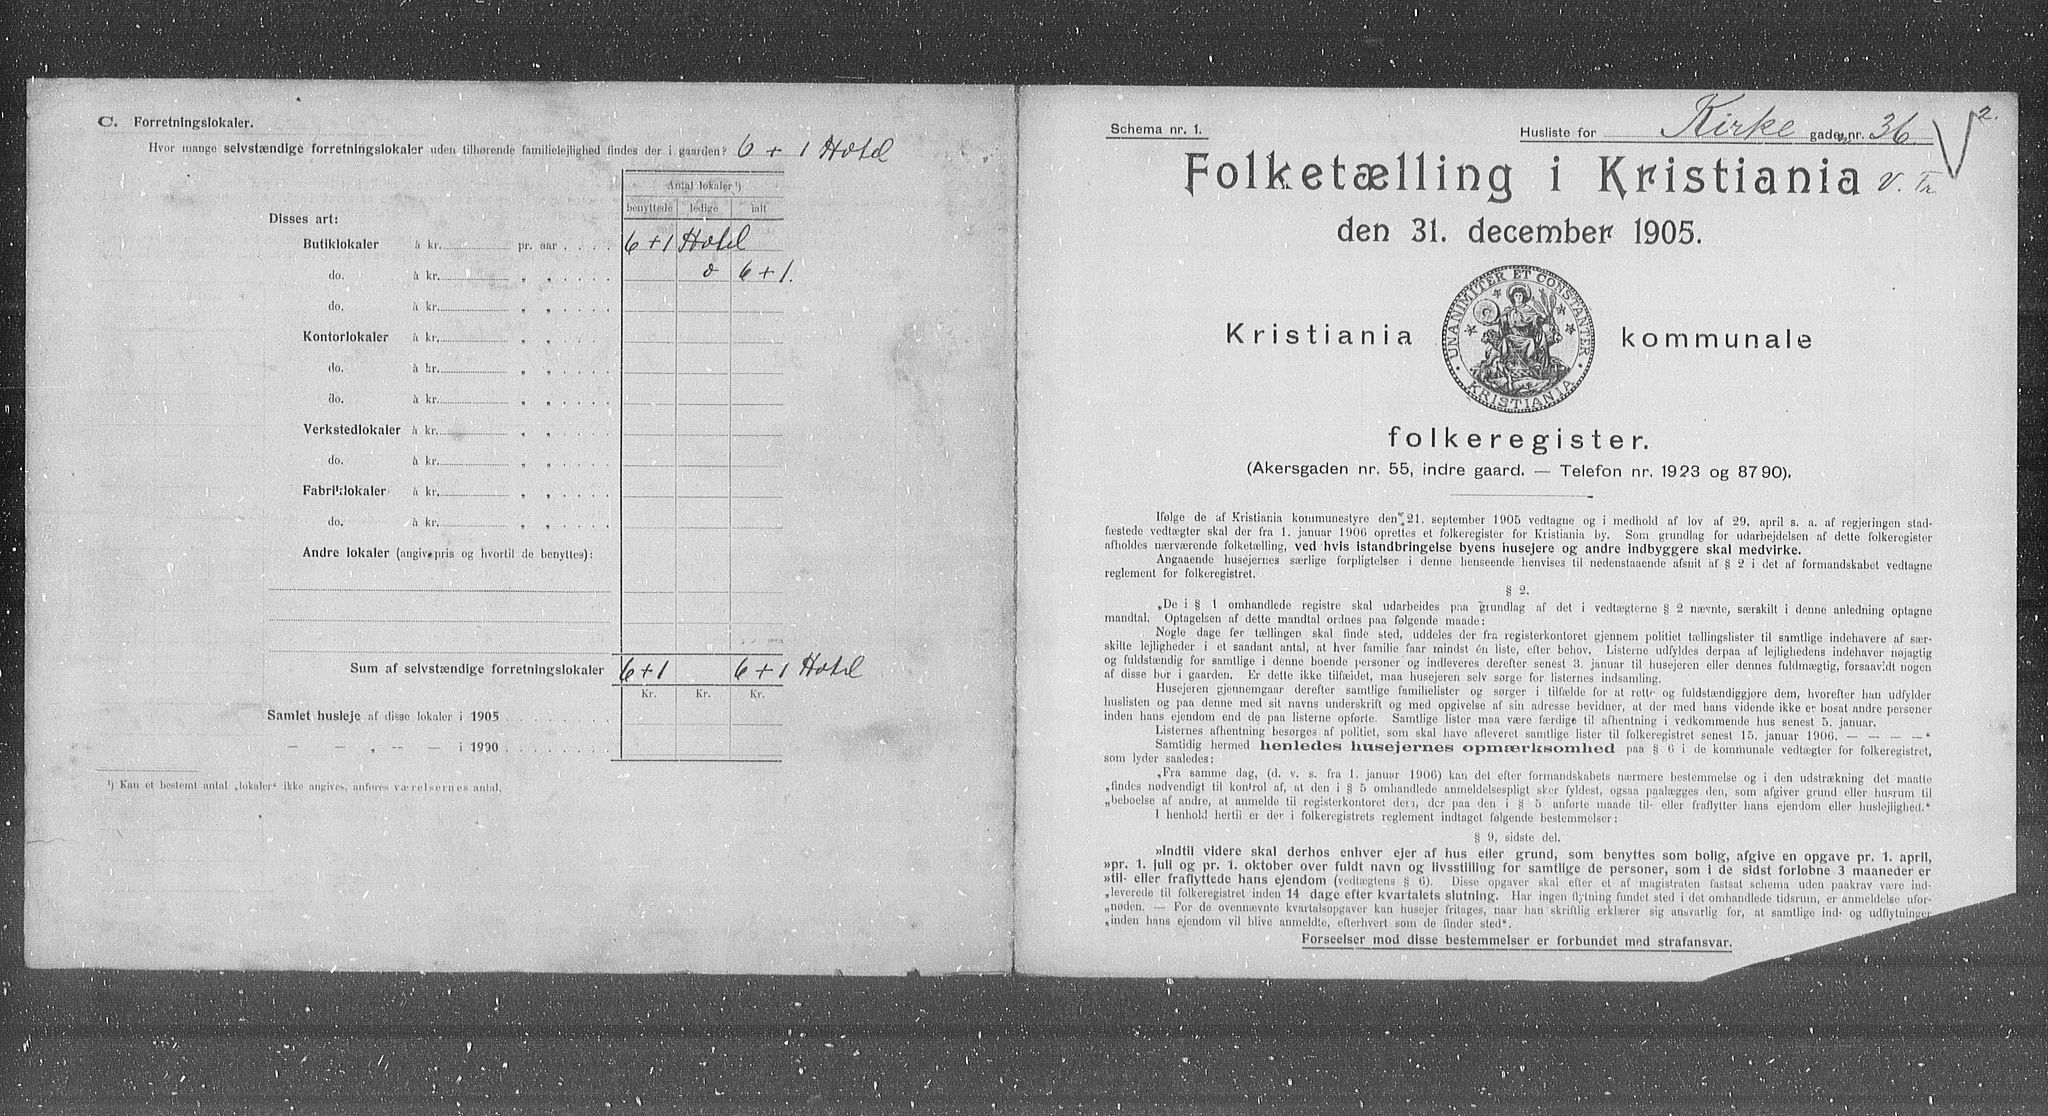 C. Forretningslokaler.
Hvor mange selvstændige forretningslokaler uden tilhørende familielejlighed findes der i gaarden? 6 + 1 Hotel
Antal lokaler ¹)
benyttede ledige ialt
Disses art:
Butiklokaler à kr. pr. aar 6+1 Hotel
do. à kr. „ „ o 6+1.
do. à kr. „ „
Kontorlokaler à kr. „ „
do. à kr. „ „
do. à kr. „ „
Verkstedlokaler à kr. „ „
do. à kr. „ „
Fabriklokaler à kr. „ „
do. à kr. „ „
Andre lokaler (angiv pris og hvortil de benyttes):
Sum af selvstændige forretningslokaler 6+1 6+1 Hotel
Kr. Kr. Kr.
Samlet husleje af disse lokaler i 1905
— — „ — — i 1900
¹) Kan et bestemt antal „lokaler“ ikke angives, anføres værelsernes antal.
Schema nr. 1.
Husliste for Kirke gaden nr. 36. 2.
Folketælling i Kristiania V. Tr.
den 31. december 1905.
UNANIMITER ET CONSTANTER · KRISTIANIA ·
Kristiania kommunale
folkeregister.
(Akersgaden nr. 55, indre gaard. — Telefon nr. 1923 og 8790).
Ifølge de af Kristiania kommunestyre den 21. september 1905 vedtagne og i medhold af lov af 29. april s. a. af regjeringen stad-
fæstede vedtægter skal der fra 1. januar 1906 oprettes et folkeregister for Kristiania by. Som grundlag for udarbejdelsen af dette folkeregister
afholdes nærværende folketælling, ved hvis istandbringelse byens husejere og andre indbyggere skal medvirke.
Angaaende husejernes særlige forpligtelser i denne henseende henvises til nedenstaaende afsnit af § 2 i det af formandskabet vedtagne
reglement for folkeregistret.
§ 2.
„De i § 1 omhandlede registre skal udarbeides paa grundlag af det i vedtægterne § 2 nævnte, særskilt i denne anledning optagne
mandtal. Optagelsen af dette mandtal ordnes paa følgende maade:
Nogle dage før tællingen skal finde sted, uddeles der fra registerkontoret gjennem politiet tællingslister til samtlige indehavere af sær-
skilte lejligheder i et saadant antal, at hver familie faar mindst én liste, efter behov. Listerne udfyldes derpaa af lejlighedens indehaver nøjagtig
og fuldstændig for samtlige i denne boende personer og indleveres derefter senest 3. januar til husejeren eller dennes fuldmægtig, forsaavidt nogen
af disse bor i gaarden. Er dette ikke tilfældet, maa husejeren selv sørge for listernes indsamling.
Husejeren gjennemgaar derefter samtlige familielister og sørger i tilfælde for at rette og fuldstændiggjøre dem, hvorefter han udfylder
huslisten og paa denne med sit navns underskrift og med opgivelse af sin adresse bevidner, at der med hans vidende ikke er bosat andre personer
inden hans ejendom end de paa listerne opførte. Samtlige lister maa være færdige til afhentning i vedkommende hus senest 5. januar.
Listernes afhentning besørges af politiet, som skal have afleveret samtlige lister til folkeregistret senest 15. januar 1906. — — — —“
Samtidig hermed henledes husejernes opmærksomhed paa § 6 i de kommunale vedtægter for folkeregistret,
som lyder saaledes:
„Fra samme dag, (d. v. s. fra 1. januar 1906) kan det efter formandskabets nærmere bestemmelse og i den udstrækning det maatte
„findes nødvendigt til kontrol af, at den i § 5 omhandlede anmeldelsespligt sker fyldest, ogsaa paalægges den, som afgiver grund eller husrum til
„beboelse af andre, at anmelde til registerkontoret dem, der paa den i § 5 anførte maade til- eller fraflytter hans ejendom eller huslejlighed.“
I henhold hertil er der i folkeregistrets reglement indtaget følgende bestemmelser:
§ 9, sidste del.
»Indtil videre skal derhos enhver ejer af hus eller grund, som benyttes som bolig, afgive en opgave pr. 1. april,
»pr. 1. juli og pr. 1. oktober over fuldt navn og livsstilling for samtlige de personer, som i de sidst forløbne 3 maaneder er
»til- eller fraflyttede hans ejendom (vedtægtens § 6). Disse opgaver skal efter et af magistraten fastsat schema uden paakrav være ind-
„leverede til folkeregistret inden 14 dage efter kvartalets slutning. Har ingen flytning fundet sted i det omhandlede tidsrum, er anmeldelse ufor-
„nøden. — For de ovennævnte kvartalsopgaver kan husejer fritages, naar han skriftlig erklærer sig ansvarlig for, at samtlige ind- og udflytninger
„inden hans ejendom vil blive anmeldte, efterhvert som de finder sted“.
Forseelser mod disse bestemmelser er forbundet med strafansvar.